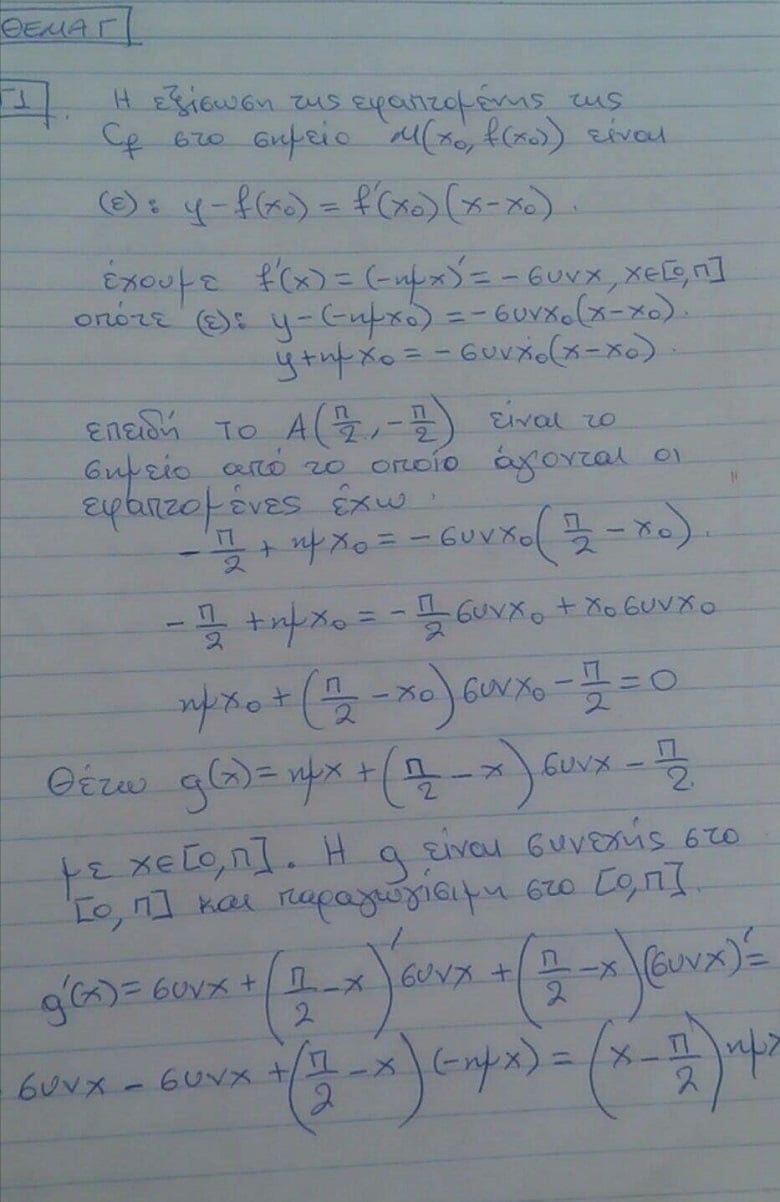 ΘΕΜΑ Γ
Γ1. Η εξίσωση της εφαπτομένης της
Cf στο σημείο Μ(x₀, f(x₀)) είναι
(ε): y-f(x₀) = f'(x₀)(x-x₀).
έχουμε f'(x) = (-ημx)' = -συνx, x∈[0,π]
οπότε (ε): y-(-ημx₀) = -συνx₀(x-x₀).
y+ημx₀ = -συνx₀(x-x₀).
επειδή το Α(π/2, -π/2) είναι το
σημείο από το οποίο άγονται οι
εφαπτομένες έχω.
-π/2 + ημx₀ = -συνx₀(π/2 - x₀).
-π/2 + ημx₀ = -π/2 συνx₀ + x₀ συνx₀
ημx₀ + (π/2 - x₀) συνx₀ - π/2 = 0
Θέτω g(x) = ημx + (π/2 - x) συνx - π/2
με x∈[0,π]. Η g είναι συνεχής στο
[0,π] και παραγωγίσιμη στο [0,π].
g'(x) = συνx + (π/2 - x)' συνx + (π/2 - x)(συνx)' =
συνx - συνx + (π/2 - x)(-ημx) = (x - π/2) ημx